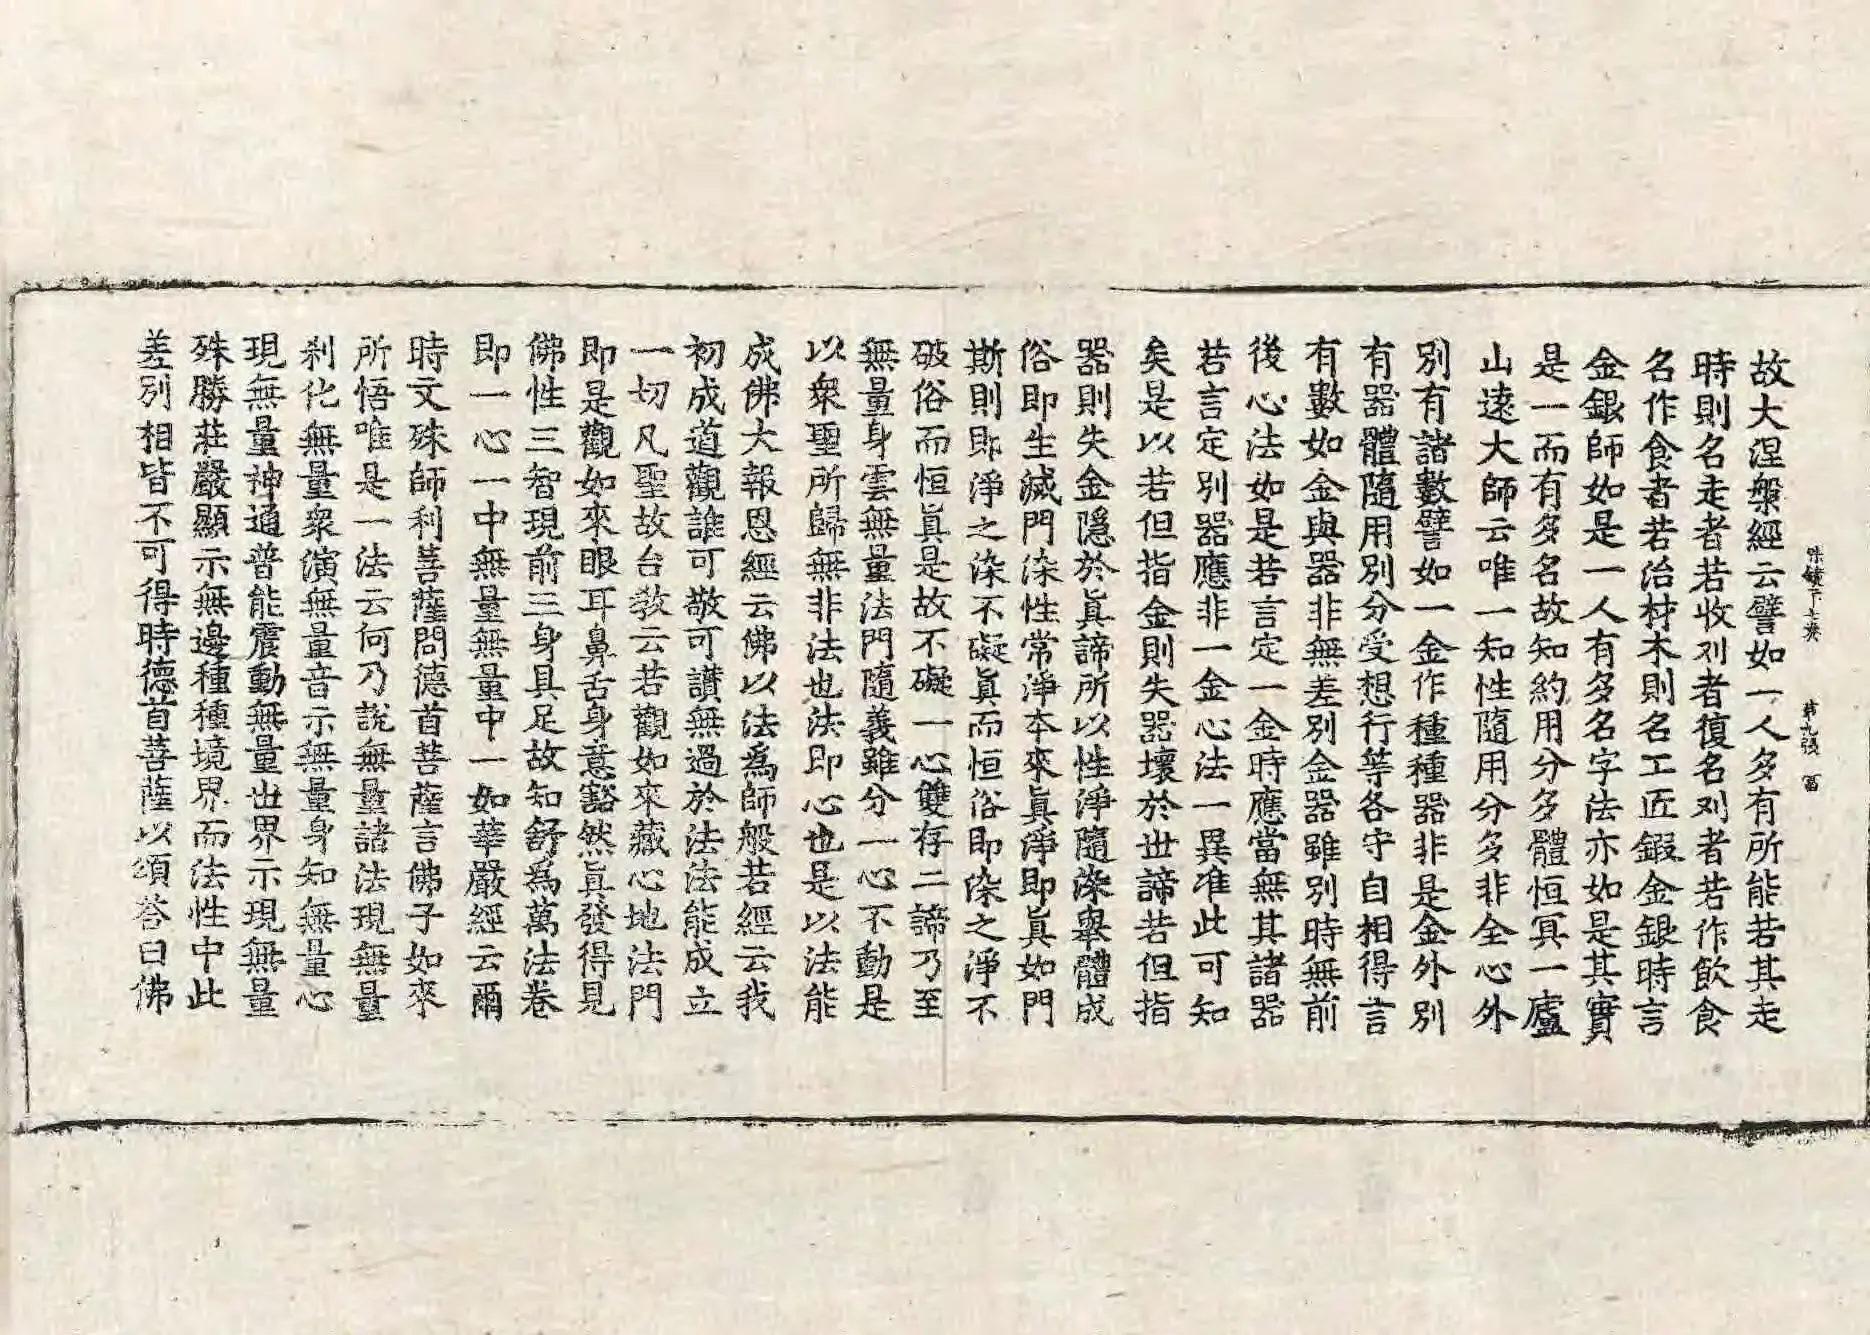 第九張 富
故大涅槃經云譬如一人多有所能若其走
時則名走者若收刈者復名刈者若作飲食
名作食者若治材木則名工匠鍛金銀時言
金銀師如是一人有多名字法亦如是其實
是一而有多名故知約用分多體恒冥一廬
山遠大師云唯一知性隨用分多非全心外
別有諸數譬如一金作種種器非是金外別
有器體隨用別分受想行等各守自相得言
有數如金與器非無差別金器雖別時無前
後心法如是若言定一金時應當無其諸器
若言定別器應非一金心法一異准此可知
矣是以若但指金則失器壞於世諦若但指
器則失金隱於眞諦所以性淨隨染舉體成
俗即生滅門染性常淨本來眞淨即眞如門
斯則即淨之染不礙眞而恒俗即染之淨不
破俗而恒眞是故不礙一心雙存二諦乃至
無量身雲無量法門隨義雖分一心不動是
以衆聖所歸無非法也法即心也是以法能
成佛大報恩經云佛以法爲師般若經云我
初成道觀誰可敬可讚無過於法法能成立
一切凡聖故台教云若觀如來藏心地法門
即是觀如來眼耳鼻舌身意豁然眞發得見
佛性三智現前三身具足故知舒爲萬法卷
即一心一中無量無量中一如華嚴經云爾
時文殊師利菩薩問德首菩薩言佛子如來
所悟唯是一法云何乃說無量諸法現無量
刹化無量衆演無量音示無量身知無量心
現無量神通普能震動無量世界示現無量
殊勝莊嚴顯示無邊種種境界而法性中此
差別相皆不可得時德首菩薩以頌荅曰佛